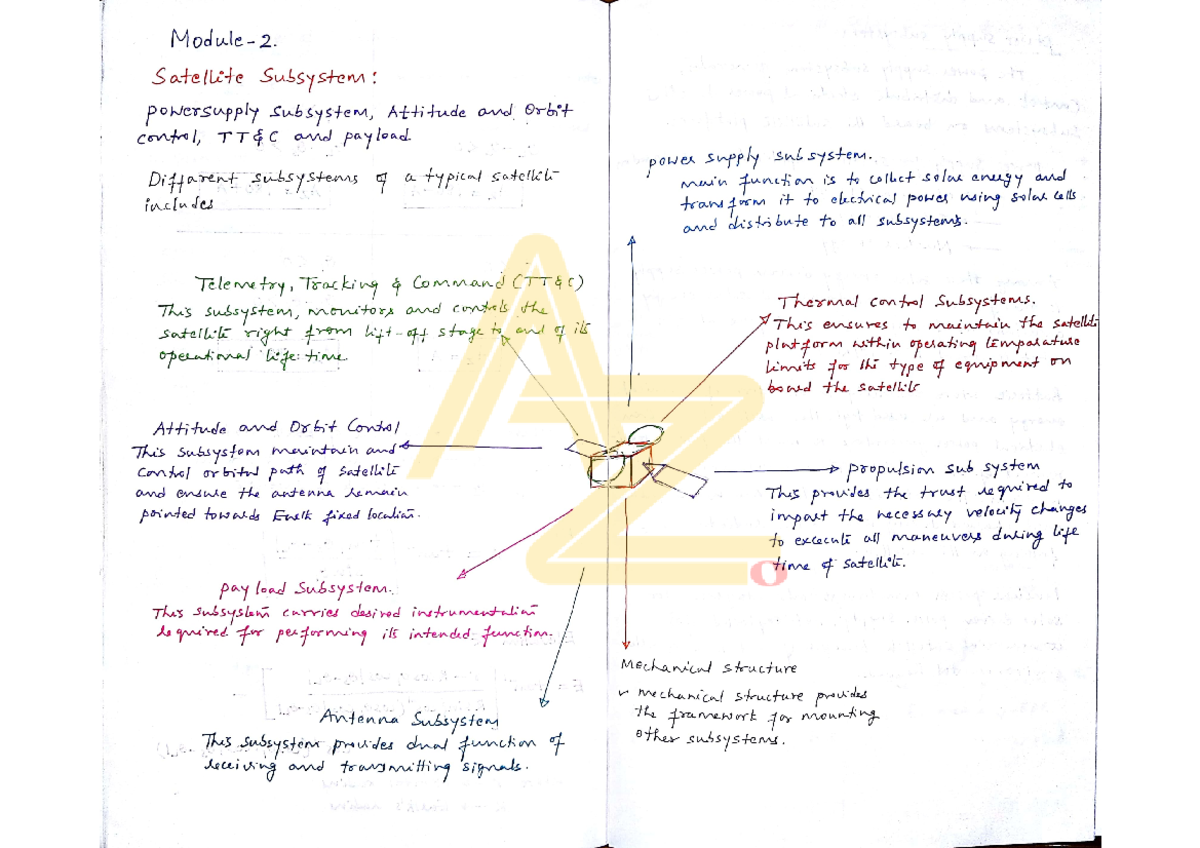 Module-2.
Satellite Subsystem:
powersupply subsystem, Attitude and Orbit
control, TT&C and payload
Different subsystems of a typical satellite
includes
Telemetry, Tracking & Command (TT&C)
This subsystem, monitors and controls the
satellite right from lift-off stage to end of its
operational life time.
Attitude and Orbit Control
This subsystem maintain and
control orbital path of satellite
and ensure the antenna remain
pointed towards Earth fixed location.
payload Subsystem.
This subsystem carries desired instrumentation
required for performing its intended function.
Antenna Subsystem
This subsystem provides dual function of
receiving and transmitting signals.
power supply subsystem.
main function is to collect solar energy and
transform it to electrical power using solar cells
and distribute to all subsystems.
Thermal control Subsystems.
This ensures to maintain the satellite
platform within operating temparature
limits for the type of equipment on
board the satellite
propulsion sub system
This provides the trust required to
impart the necessary velocity changes
to excecute all maneuvers during life
time of satellite.
Mechanical structure
mechanical structure provides
the framework for mounting
other subsystems.
AZ
O